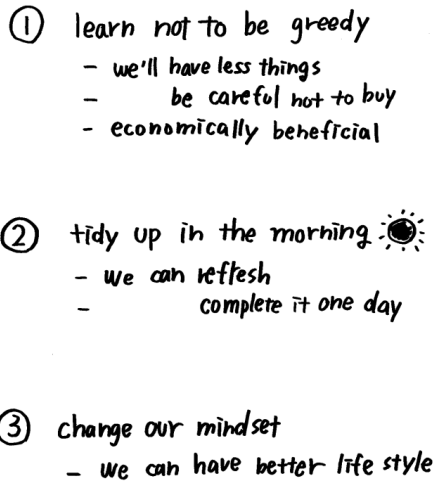 ① learn not to be greedy
- we'll have less things
- be careful not to buy
- economically beneficial
② tidy up in the morning
- we can refresh
- complete it one day
③ change our mindset
- we can have better life style